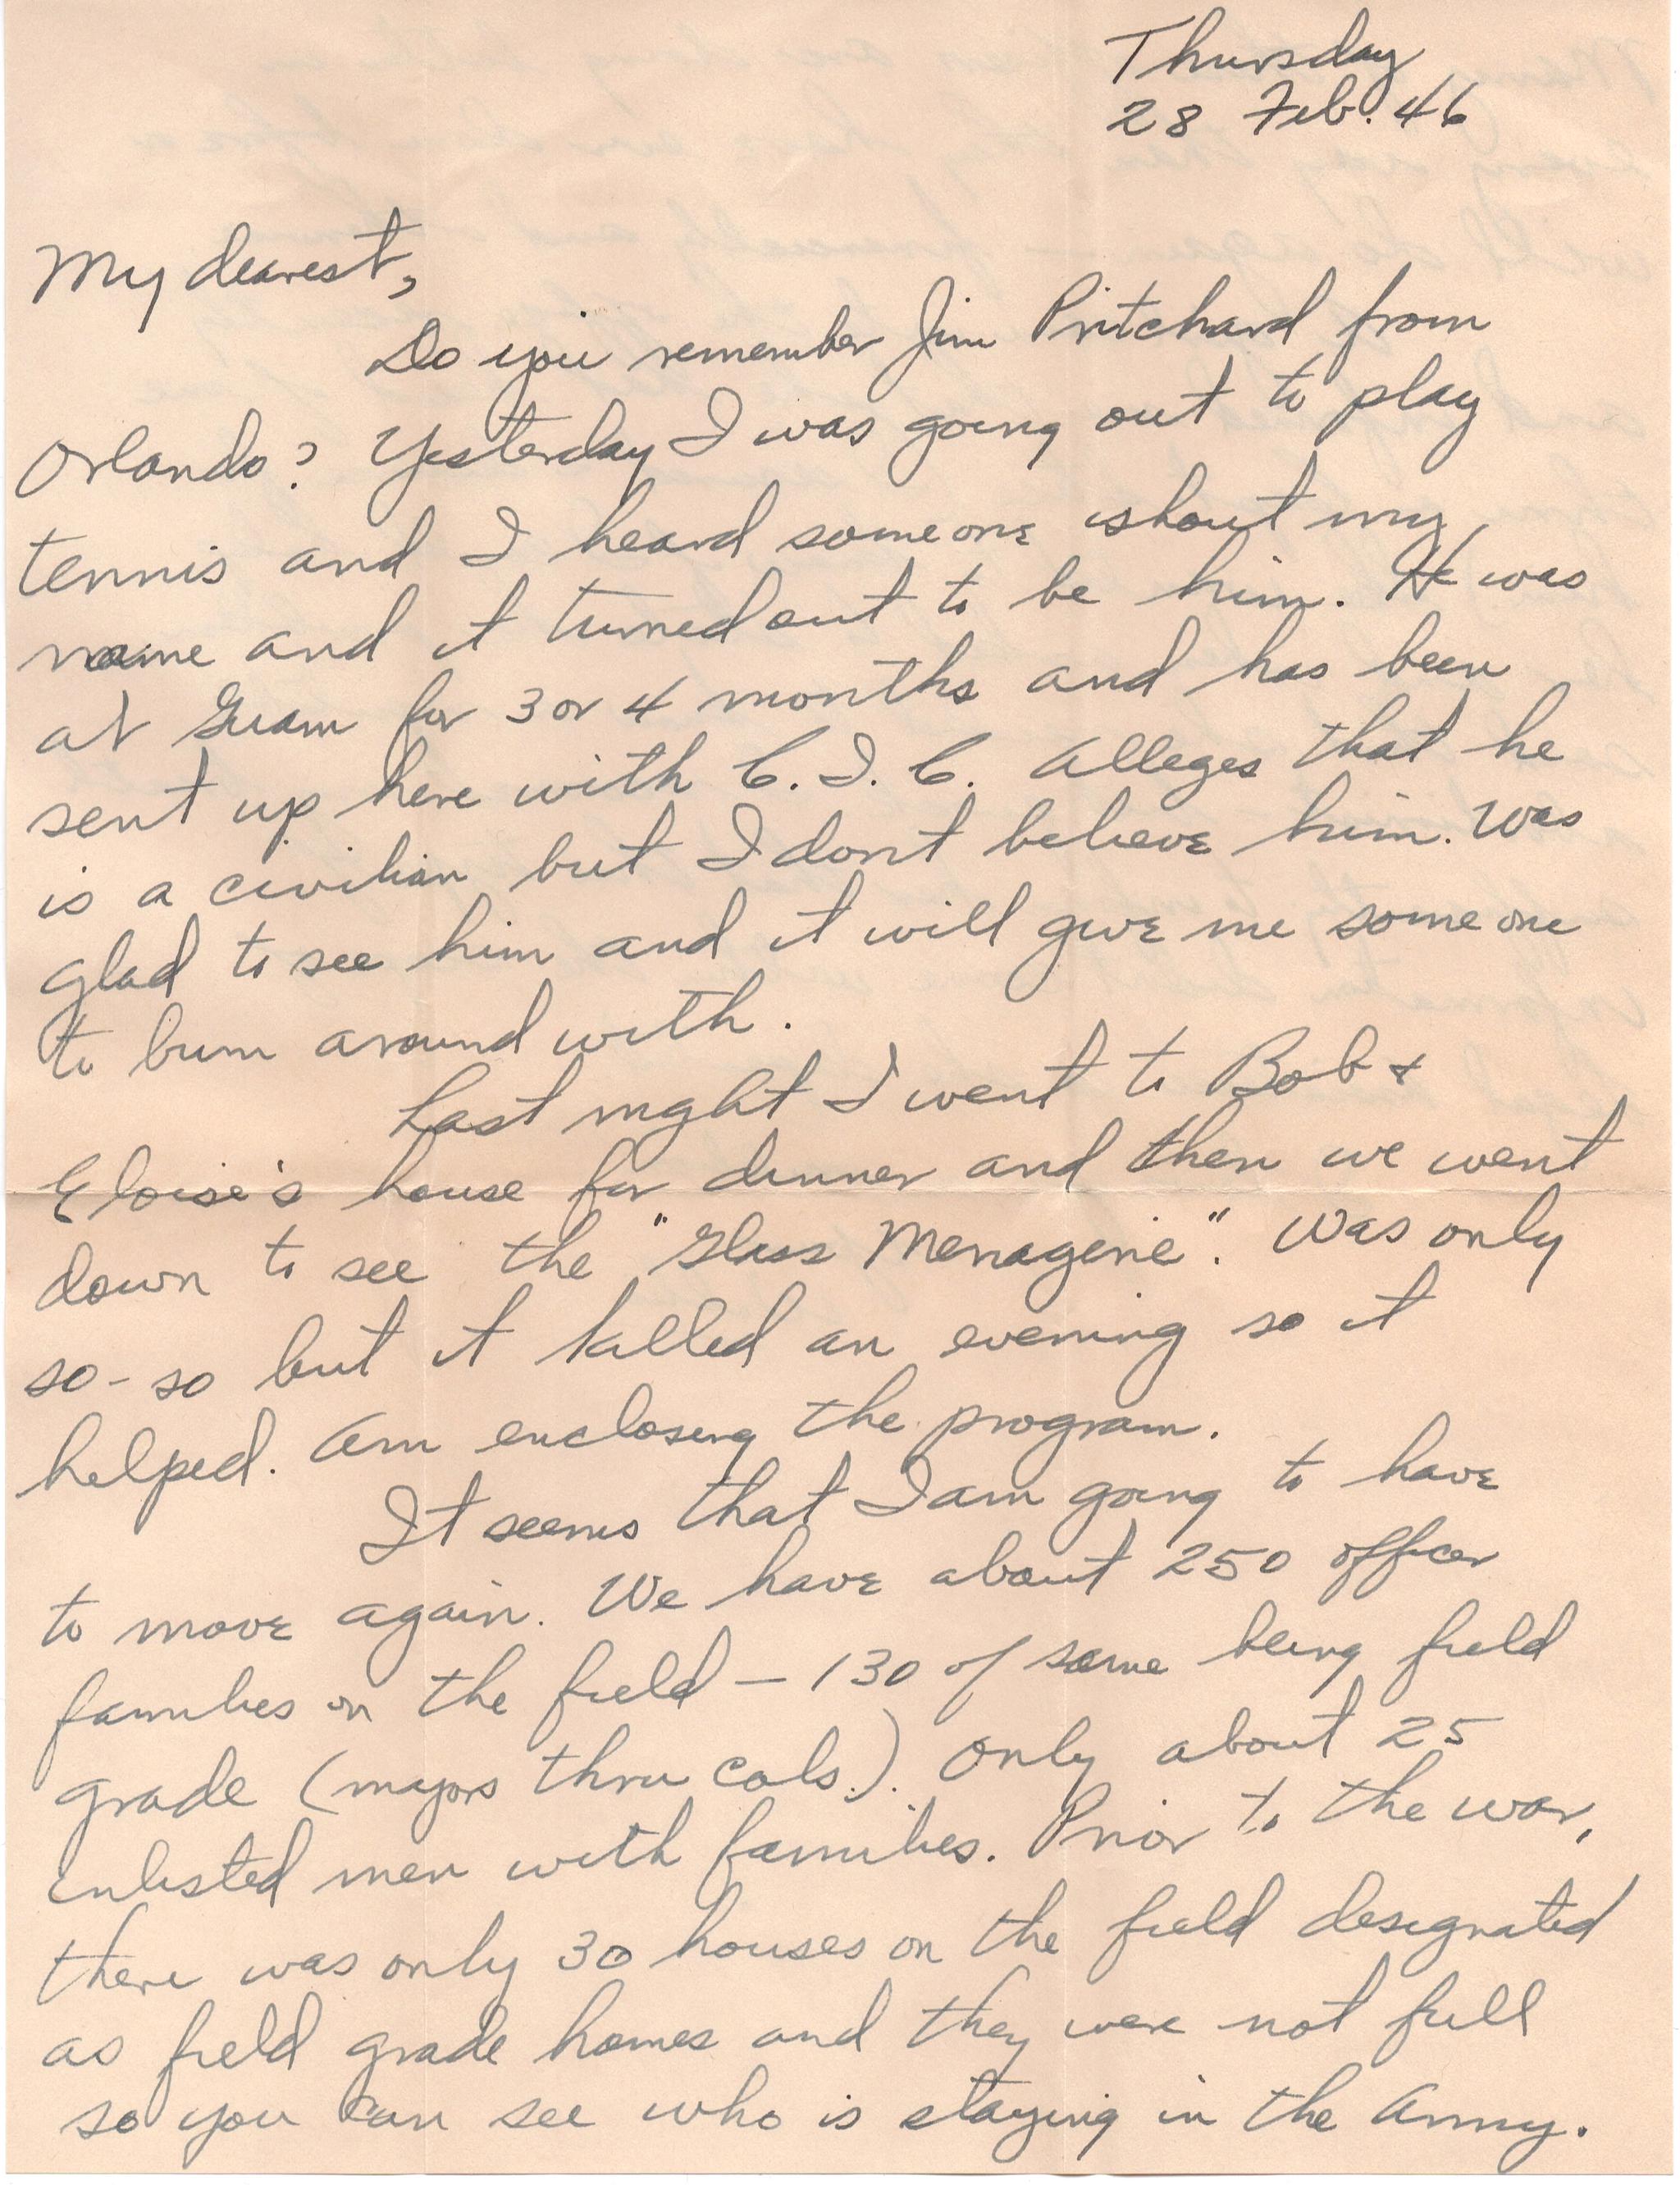 Thursday
28 Feb. 46
My dearest,
Do you remember Jim Pritchard from
Orlando? Yesterday I was going out to play
tennis and I heard someone shout my
name and it turned out to be him. He was
at Guam for 3 or 4 months and has been
sent up here with C.I.C. Alleges that he
is a civilian but I don't believe him. Was
glad to see him and it will give me someone
to bum around with.
Last night I went to Bob &
Eloise's house for dinner and then we went
down to see the "Glass Menagerie". Was only
so-so but it killed an evening so it
helped. Am enclosing the program.
It seems that I am going to have
to move again. We have about 250 officer
families on the field - 130 of same being field
grade (majors thru cols.). Only about 25
enlisted men with families. Prior to the war,
there was only 30 houses on the field designated
as field grade homes and they were not full
so you can see who is staying in the Army.